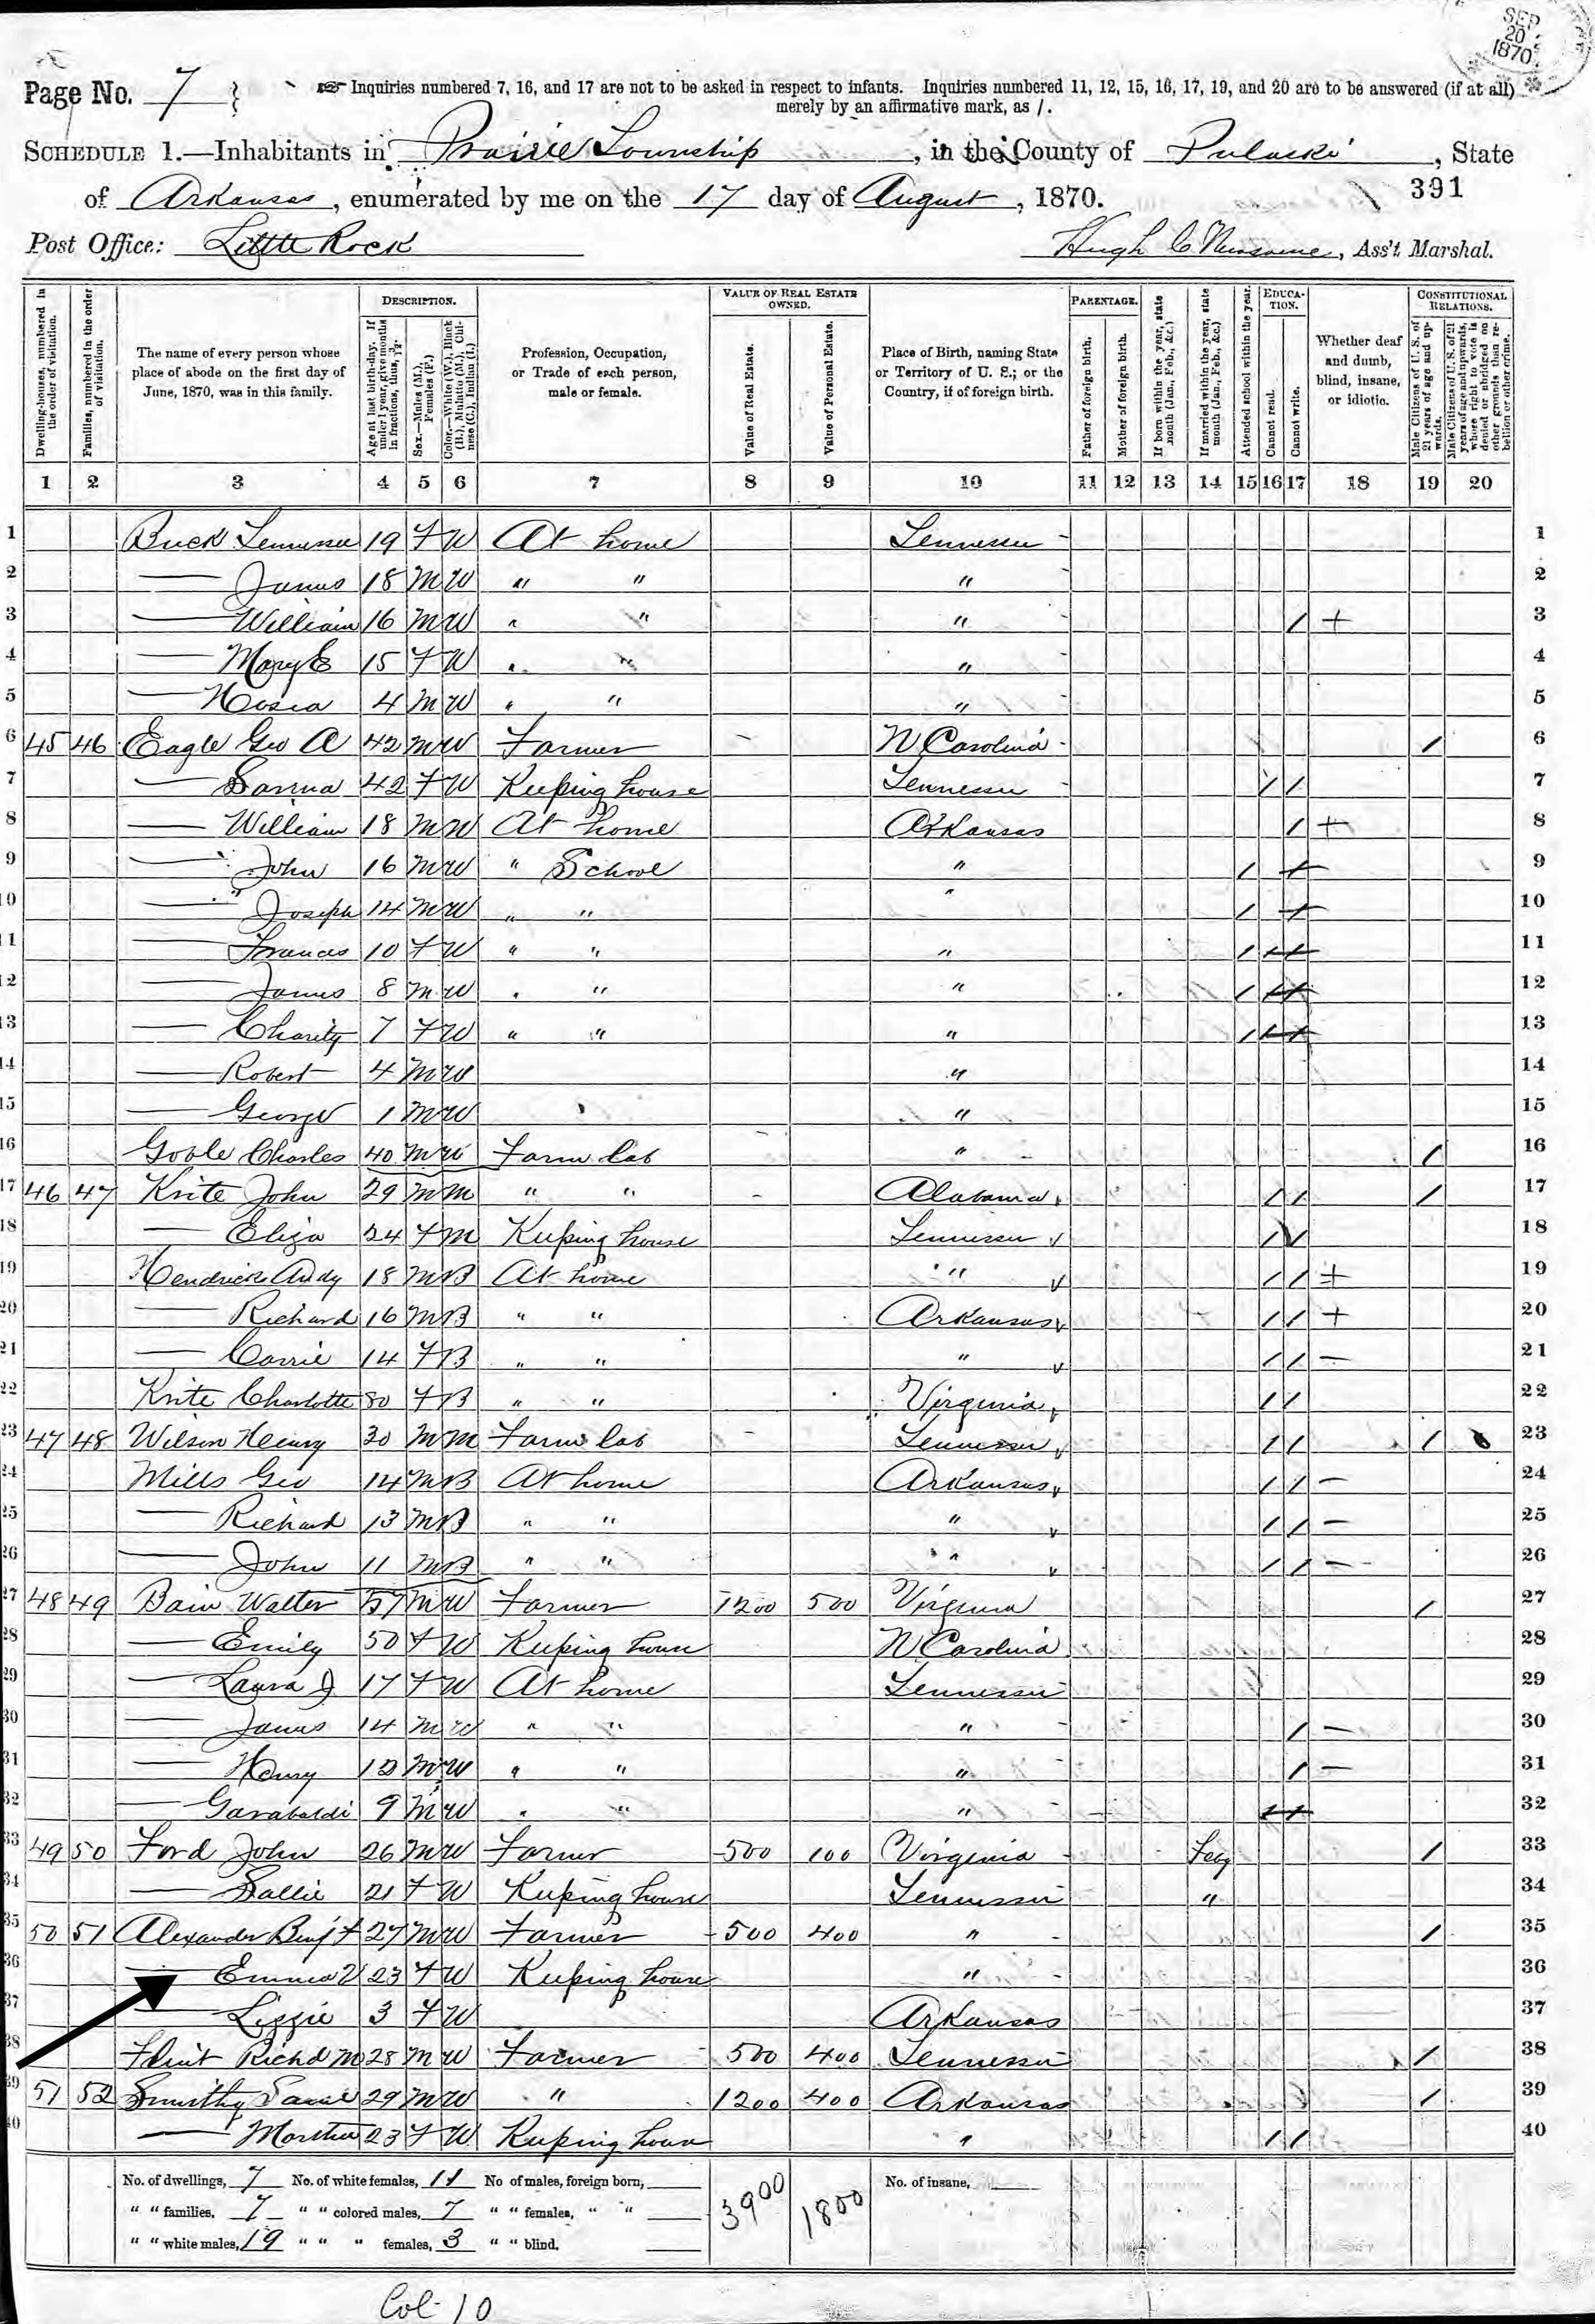 SEP 20 1870
Page No. 7 Inquiries numbered 7, 16, and 17 are not to be asked in respect to infants. Inquiries numbered 11, 12, 15, 16, 17, 19, and 20 are to be answered (if at all)
merely by an affirmative mark, as /.
SCHEDULE 1.—Inhabitants in Prairie Township, in the County of Pulaski, State
of Arkansas, enumerated by me on the 17 day of August, 1870. 391
Post Office: Little Rock Hugh C, Ass't Marshal.
Dwelling-houses, numbered in the order of visitation.
Families, numbered in the order of visitation.
The name of every person whose place of abode on the first day of June, 1870, was in this family.
DESCRIPTION.
Age at last birth-day. If under 1 year, give months in fractions, thus,
Sex.—Males (M.), Females (F.)
Color.—White (W.), Black (B.), Mulatto (M.), Chinese (C.), Indian (I.)
Profession, Occupation, or Trade of each person, male or female.
VALUE OF REAL ESTATE OWNED.
Value of Real Estate.
Value of Personal Estate.
Place of Birth, naming State or Territory of U. S.; or the Country, if of foreign birth.
PARENTAGE.
Father of foreign birth.
Mother of foreign birth.
If born within the year, state month (Jan., Feb., &c.)
If married within the year, state month (Jan., Feb., &c.)
Attended school within the year.
EDUCATION.
Cannot read.
Cannot write.
Whether deaf and dumb, blind, insane, or idiotic.
CONSTITUTIONAL RELATIONS.
Male Citizens of U. S. of 21 years of age and upwards.
Male Citizens of U. S. of 21 years of age and upwards, whose right to vote is denied or abridged on other grounds than rebellion or other crime.
1 2 3 4 5 6 7 8 9 10 11 12 13 14 15 16 17 18 19 20
1 Buck Tennessee 19 F W At home Tennessee 1
2 — James 18 M W " " " 2
3 — William 16 M W " " " / + 3
4 — Mary E 15 F W " " " 4
5 — Hosea 4 M W " " " 5
6 45 46 Eagle Geo A 42 M W Farmer N Carolina / 6
7 — 42 F W Keeping house Tennessee / / 7
8 — William 18 M W At home Arkansas / + 8
9 — John 16 M W " School " / / 9
10 — Joseph 14 M W " " " / / 10
11 — Frances 10 F W " " " / / / 11
12 — James 8 M W " " " / / / 12
13 — Charity 7 F W " " " / / / 13
14 — Robert 4 M W " 14
15 — George 1 M W " 15
16 Goble Charles 40 M W Farm lab " / 16
17 46 47 Krite John 29 M M " " Alabama / / / 17
18 — Eliza 24 F M Keeping house Tennessee / / 18
19 Hendricks Andy 18 M B At home " / / + 19
20 — Richard 16 M B " " Arkansas / / + 20
21 — Carrie 14 F B " " " / / — 21
22 Krite Charlotte 80 F B " " Virginia / / 22
23 47 48 Wilson Henry 30 M M Farm lab Tennessee / / / 23
24 Mills Geo 14 M B At home Arkansas / / — 24
25 — Richard 13 M B " " " / / — 25
26 — John 11 M B " " " / / — 26
27 48 49 Bain Walter 57 M W Farmer 1200 500 Virginia / 27
28 — Emily 50 F W Keeping house N Carolina 28
29 — Laura J 17 F W At home Tennessee 29
30 — James 14 M W " " " / — 30
31 — Henry 12 M W " " " / — 31
32 — Garabaldi 9 M W " " " / / 32
33 49 50 Ford John 26 M W Farmer 500 100 Virginia Feby / 33
34 — Sallie 21 F W Keeping house Tennessee " 34
35 50 51 Alexander Benj F 27 M W Farmer 500 400 " / 35
36 — Emma V 23 F W Keeping house " 36
37 — Lizzie 3 F W Arkansas 37
38 Flint Richd M 28 M W Farmer 500 400 Tennessee / 38
39 51 52 29 M W " 1200 400 Arkansas / 39
40 — Martha 23 F W Keeping house " / / 40
No. of dwellings, 7 No. of white females, 11 No of males, foreign born, 3900 1800 No. of insane,
" " families, 7 " " colored males, 7 " " females, " "
" " white males, 19 " " " females, 3 " " blind,
Col 10